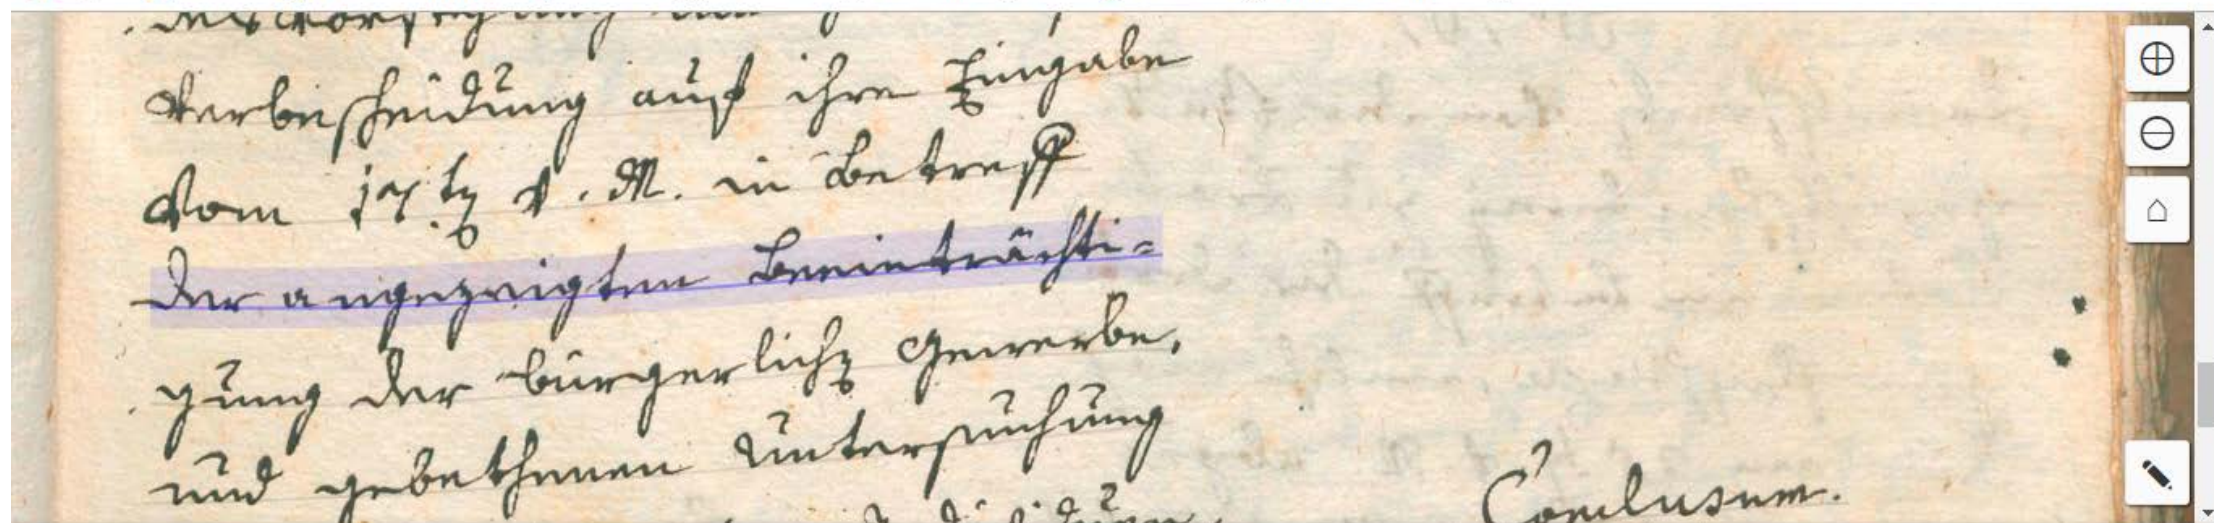 Verbescheidung auf ihre Eingabe
vom 17t v. M. in Betreff
der angezeigten Beeinträchti=
gung der bürgerlich Gewerbe,
und gebethenen Untersuchung
Conclusum.